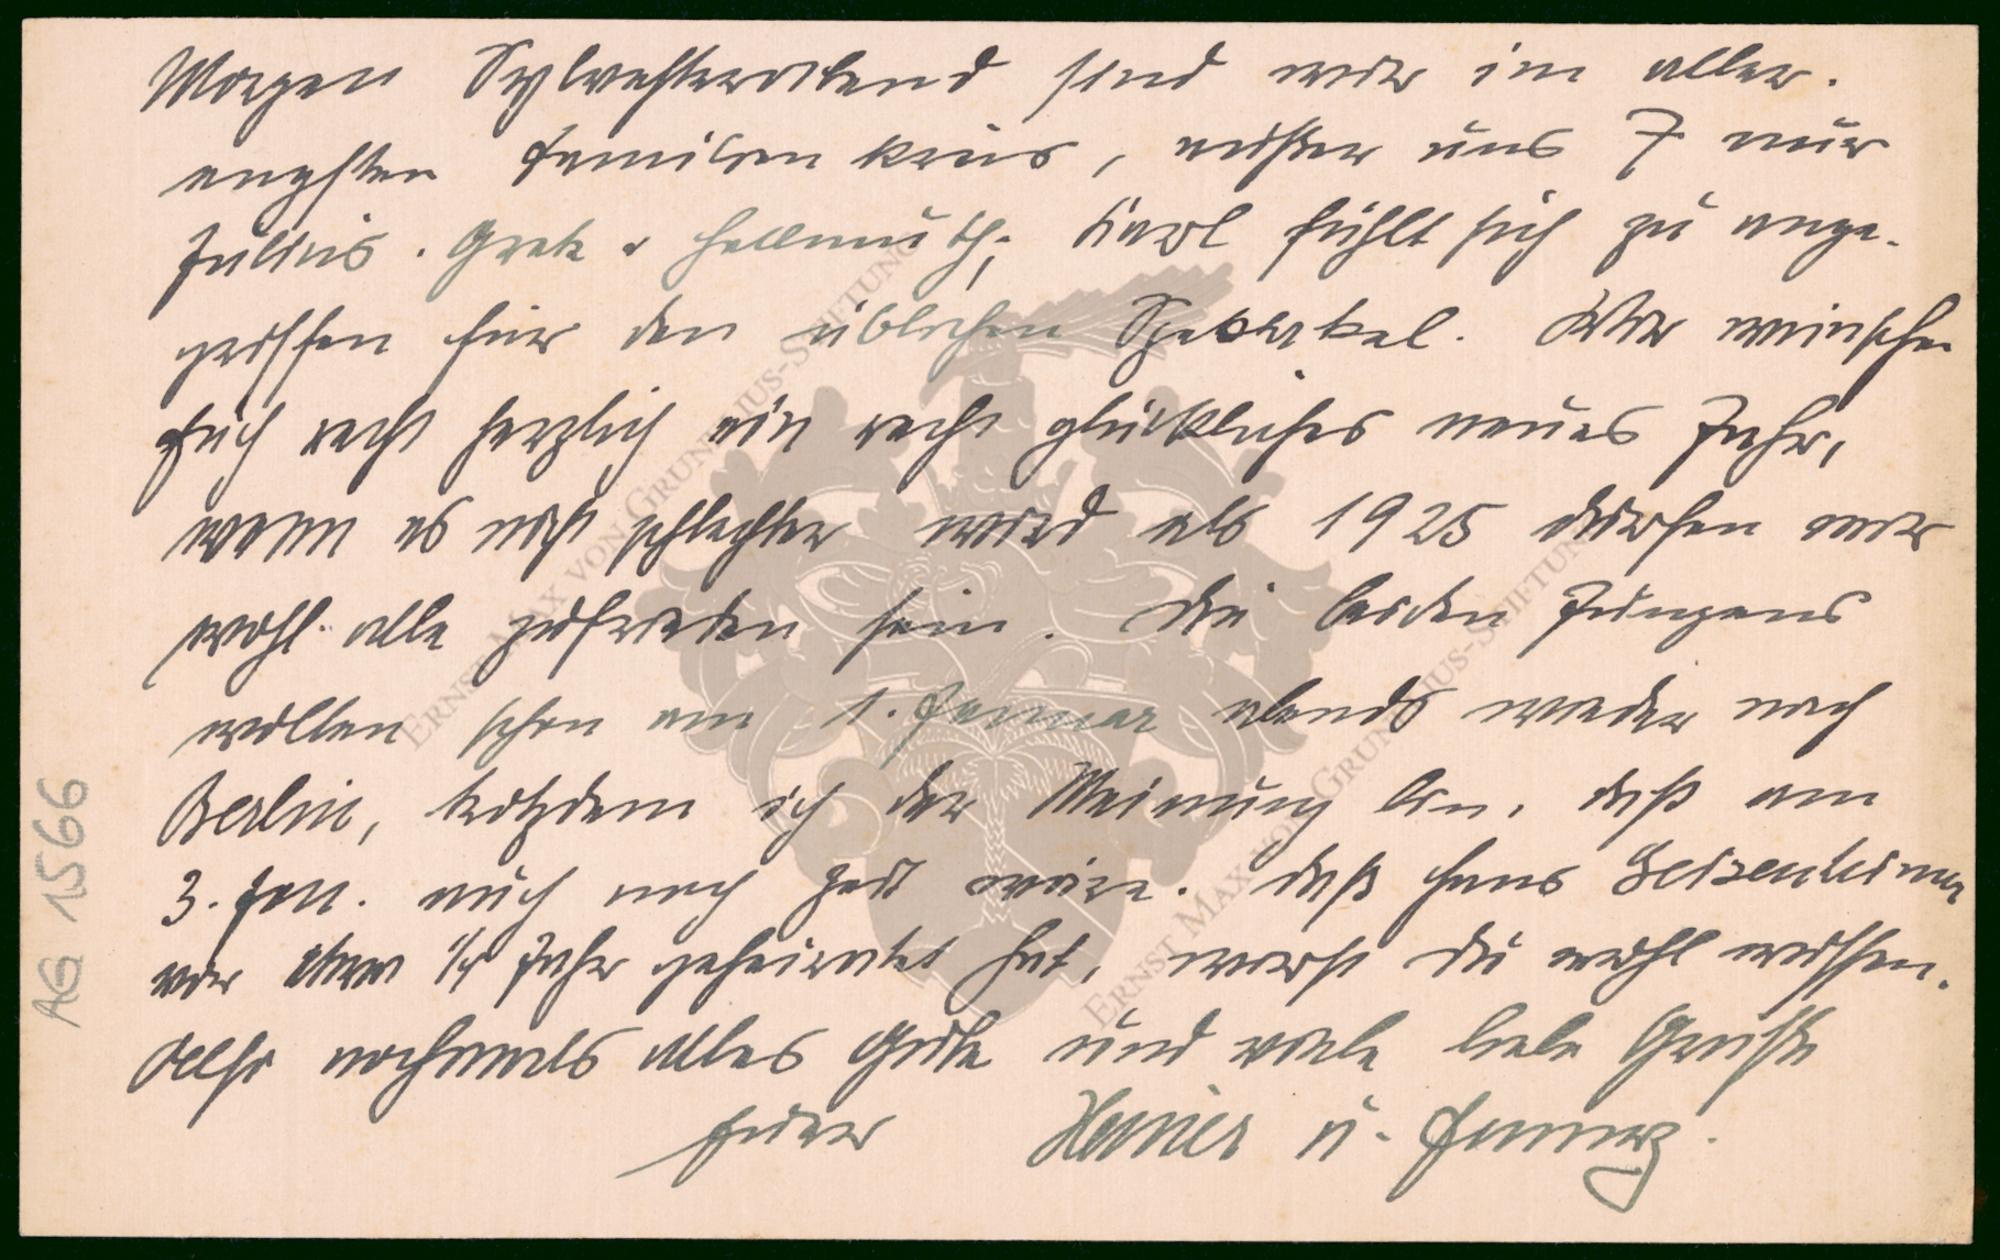 Morgen Sylvesterabend sind wir im aller-
engsten Familienkreis, außer uns 7 nur
Julius, Grete & Hellmuth; Karl fühlt sich zu ange-
griffen für den üblichen Spektakel. Wir wünschen
Euch recht herzlich ein recht glückliches neues Jahr,
wenn es nicht schlechter wird als 1925 dürfen wir
wohl alle zufrieden sein. Die beiden Jungens
wollen schon am 1. Januar abends wieder nach
Berlin, trotzdem ich der Meinung bin, daß am
3. Jan. auch noch Zeit wäre. Daß Hans
vor etwa 1/4 Jahr geheiratet hat, wirst Du wohl wissen.
Also nochmals alles Gute und viele liebe Grüße
Eurer u.
AG 1566
ERNST MAX VON GRUNELIUS-STIFTUNG
ERNST MAX VON GRUNELIUS-STIFTUNG